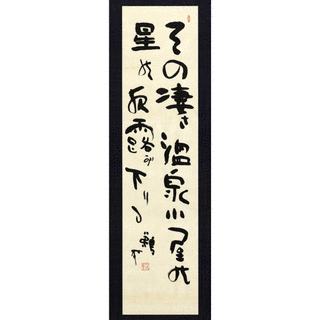 その凄き温泉小屋の
星の夜露が下りる